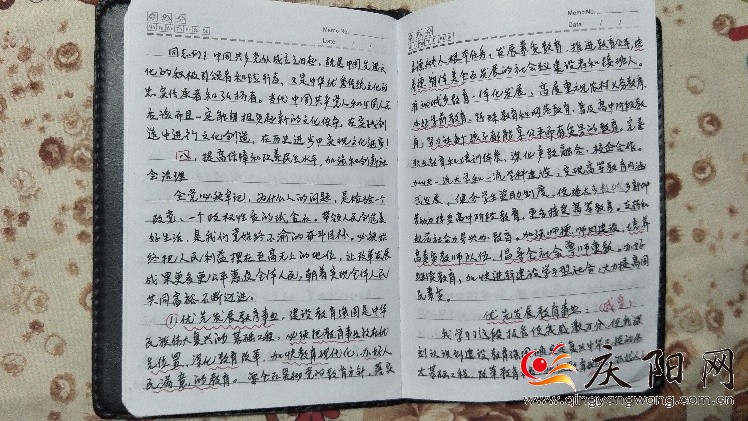 Memo No.
Date / /
同志们！中国共产党从成立之日起，既是中国先进文
化的积极引领者和践行者，又是中华优秀传统文化的忠
实传承者和弘扬者。当代中国共产党人和中国人民
应该而且一定能够担负起新的文化使命，在实践创
造中进行文化创造，在历史进步中实现文化进步！
八、提高保障和改善民生水平，加强和创新社
会治理
全党必须牢记，为什么人的问题，是检验一个
政党、一个政权性质的试金石。带领人民创造美
好生活，是我们党始终不渝的奋斗目标。必须始
终把人民利益摆在至高无上的地位，让改革发展
成果更多更公平惠及全体人民，朝着实现全体人民
共同富裕不断迈进。
①优先发展教育事业，建设教育强国是中华
民族伟大复兴的基础工程，必须把教育事业放在优
先位置，深化教育改革，加快教育现代化，办好人
民满意的教育。要全面贯彻党的教育方针，落实
Memo No.
Date / /
立德树人根本任务，发展素质教育，推进教育公平，培
养德智体美全面发展的社会主义建设者和接班人。
推动城乡教育一体化发展，高度重视农村义务教育，
办好学前教育、特殊教育和网络教育，普及高中阶段教
育，努力让每个孩子都能享有公平而有质量的教育。完善
职业教育和培训体系，深化产教融合、校企合作。
加快一流大学和一流学科建设，实现高等教育内涵
式发展。健全学生资助制度，使绝大多数城乡新增
劳动力接受高中阶段教育、更多接受高等教育。支持和
规范社会力量兴办教育。加强师德师风建设，培养
高素质教师队伍，倡导全社会尊师重教。办好
继续教育，加快建设学习型社会，大力提高国
民素质。
优先发展教育事业：感言：
我学习了这段报告很
大基础工程，改革教育
庆阳网
www.qingyangwang.com.cn